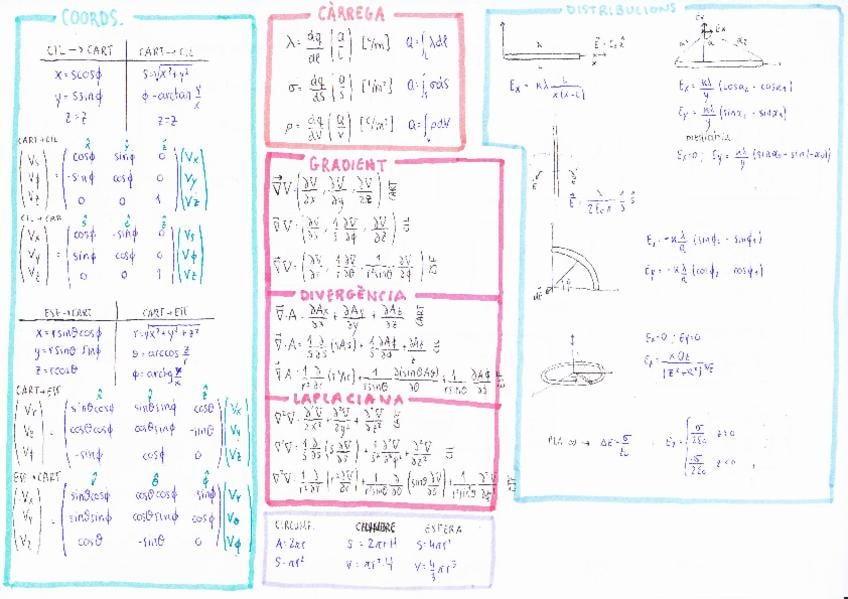 COORDS.
CIL → CART CART → CIL
x = s cosφ s = √x²+y²
y = s sinφ φ = arctan y/x
z = z z = z
CART → CIL
x̂ ŷ ẑ
(Vs) = (cosφ sinφ 0) (Vx)
(Vφ) (-sinφ cosφ 0) (Vy)
(Vz) (0 0 1) (Vz)
CIL → CAR
(Vx) = (cosφ -sinφ 0) (Vs)
(Vy) (sinφ cosφ 0) (Vφ)
(Vz) (0 0 1) (Vz)
ESF → CART CART → ESF
x = r sinθ cosφ r = √x²+y²+z²
y = r sinθ sinφ θ = arccos z/r
z = r cosθ φ = arctg y/x
CART → ESF
x̂ ŷ ẑ
sinθcosφ sinθsinφ cosθ
cosθcosφ cosθsinφ -sinθ
-sinφ cosφ 0
ESF → CART
r̂ θ̂ φ̂
sinθcosφ cosθcosφ sinφ
sinθsinφ cosθsinφ cosφ
cosθ -sinθ 0
CÀRREGA
λ = dq/dl (Q/L) [C/m] Q = ∫ λdl
σ = dq/dS (Q/S) [C/m²] Q = ∫ σds
ρ = dq/dV (Q/V) [C/m³] Q = ∫ ρdV
GRADIENT
∇V = (∂V/∂x, ∂V/∂y, ∂V/∂z)
∇V = (∂V/∂s, 1/s ∂V/∂φ, ∂V/∂z)
∇V = (∂V/∂r, 1/r ∂V/∂θ, 1/r sinθ ∂V/∂φ)
DIVERGÈNCIA
∇·A = ∂Ax/∂x + ∂Ay/∂y + ∂Az/∂z
∇·A = 1/s ∂/∂s (sAs) + 1/s ∂Aφ/∂φ + ∂Az/∂z
∇·A = 1/r² ∂/∂r (r²Ar) + 1/rsinθ ∂(sinθAθ)/∂θ + 1/rsinθ ∂Aφ/∂φ
LAPLACIANA
∇²V = ∂²V/∂x² + ∂²V/∂y² + ∂²V/∂z²
∇²V = 1/s ∂/∂s (s ∂V/∂s) + 1/s² ∂²V/∂φ² + ∂²V/∂z²
∇²V = 1/r² ∂/∂r (r² ∂V/∂r) + 1/r²sinθ ∂/∂θ (sinθ ∂V/∂θ) + 1/r²sin²θ ∂²V/∂φ²
CIRCUMF. CILINDRE ESFERA
A = 2πr S = 2πrH S = 4πr²
S = πr² V = πr²·H V = 4/3 πr³
DISTRIBUCIONS
Ex = κλ L/x(x-L)
Ex = κλ/y (cosα₂ - cosα₁)
Ey = κλ/y (sinα₂ - sinα₁)
mediatriu
Ex = 0 ; Ey = κλ/y
E = λ/2πε₀ 1/s ŝ
(sinφ₂ - sinφ₁)
(cosφ₂ cosφ₁)
Ex = 0 ; Ey = 0
PLA ∞ → ΔE = σ/ε₀
σ/2ε₀ z>0
-σ/2ε₀ z<0